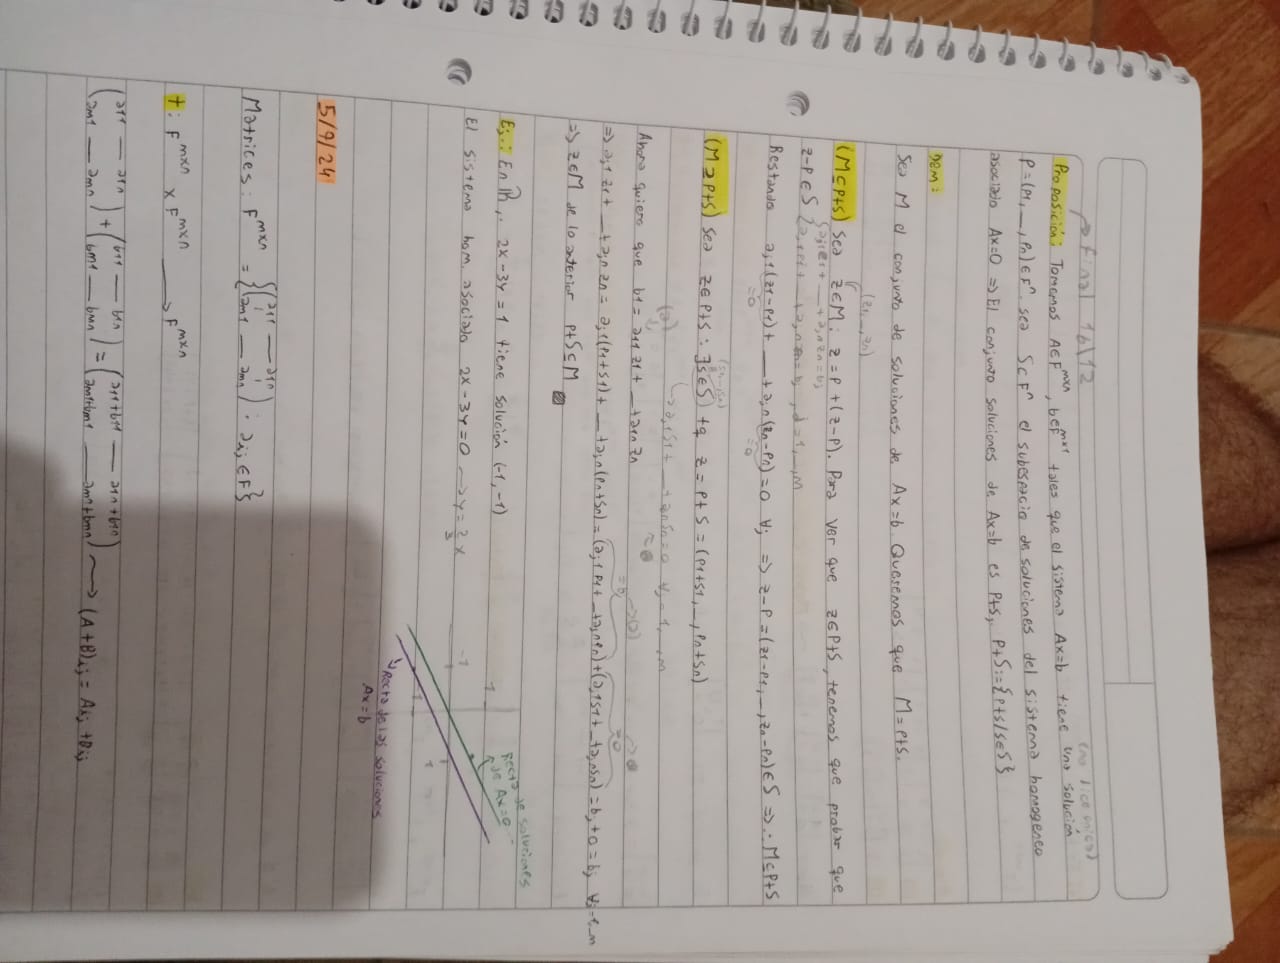 Final 16/12
(no dice única)
Proposición: Tomamos A∈F^mxn, b∈F^mx1 tales que el sistema Ax=b tiene una solución
P=(P1, _, Pn)∈F^n. sea S⊂F^n el subespacio de soluciones del sistema homogeneo
asociado Ax=0 => El conjunto soluciones de Ax=b es P+S, P+S:={P+s/s∈S}
DEM:
Sea M el conjunto de soluciones de Ax=b. Queremos que M=P+S.
(z1, _, zn)
(M⊂P+S) Sea z∈M: z=P+(z-P). Para ver que z∈P+S, tenemos que probar que
z-P∈S
Restando aj1(z1-P1)+ _ +ajn(zn-Pn)=0 ∀j => z-P=(z1-P1, _, zn-Pn)∈S => ∴ M⊂P+S
=0 =0
(s1, _, sn)
(M⊇P+S) Sea z∈P+S: ∃s∈S) tq z=P+S=(P1+S1, _, Pn+Sn)
Ahora quiero que b1=a11z1+ _ +a1nzn
=> aj1z1+ _ +ajnzn=aj1(P1+S1)+ _ +ajn(Pn+Sn)=(aj1P1+ _ +ajnPn)+(aj1S1+ _ +ajnSn)=bj+0=bj ∀j=1,_n
=> z∈M de lo anterior P+S⊂M
Ej.: En R, 2x-3y=1 tiene solución (-1,-1)
El sistema hom. asociado 2x-3y=0 → y=2/3 x
Recta de soluciones
de Ax=0
-1
1
1
Recta de las soluciones
Ax=b
5/9/24
Matrices: F^mxn = {(a11 — a1n am1 — amn) : aij∈F}
+: F^mxn x F^mxn → F^mxn
(a11 — a1n) + (b11 — b1n) = (a11+b11 — a1n+b1n)
(am1 — amn) + (bm1 — bmn) = (am1+bm1 — amn+bmn) → (A+B)ij = Aij+Bij